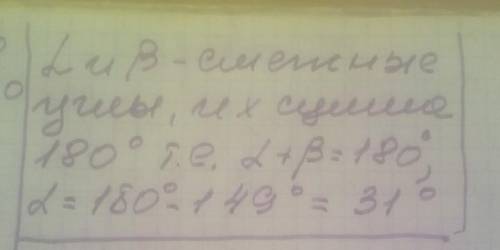 α и β - смежные
углы, их сумма
180° т.е. α+β=180°,
α=180°-149°= 31°